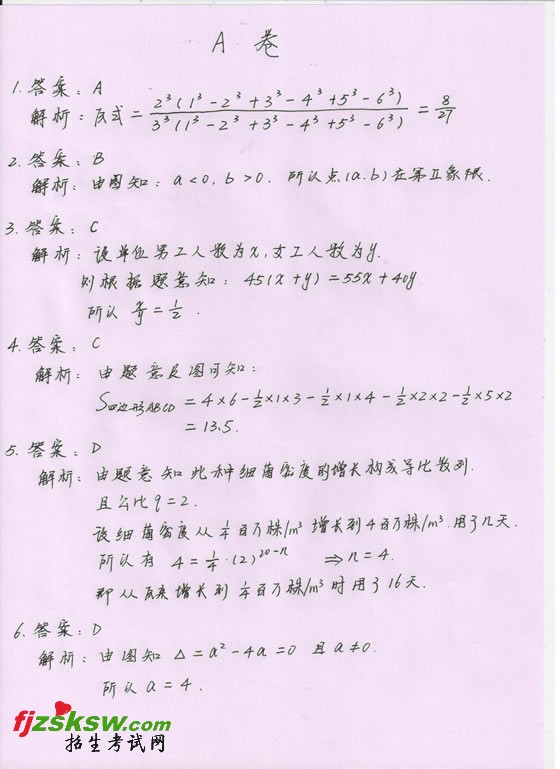 A 卷
1. 答案: A
解析: 原式 = 2³(1³-2³+3³-4³+5³-6³) / 3³(1³-2³+3³-4³+5³-6³) = 8/27
2. 答案: B
解析: 由图知: a<0, b>0. 所以点(a.b)在第Ⅱ象限.
3. 答案: C
解析: 设单位男工人数为x, 女工人数为y.
则根据题意知: 45(x+y)=55x+40y
所以 x/y = 1/2.
4. 答案: C
解析: 由题意及图可知:
S四边形ABCD = 4×6-1/2×1×3-1/2×1×4-1/2×2×2-1/2×5×2
= 13.5.
5. 答案: D
解析: 由题意知此种细菌密度的增长构成等比数列.
且公比q=2.
设细菌密度从1/4百万株/m³增长到4百万株/m³.用了n天.
所以有 4=1/4·(2)²⁰⁻ⁿ ⇒n=4.
即从原来增长到1/4百万株/m³时用了16天.
6. 答案: D
解析: 由图知 Δ=a²-4a=0 且 a≠0.
所以 a=4.
fjzsksw.com
招生考试网